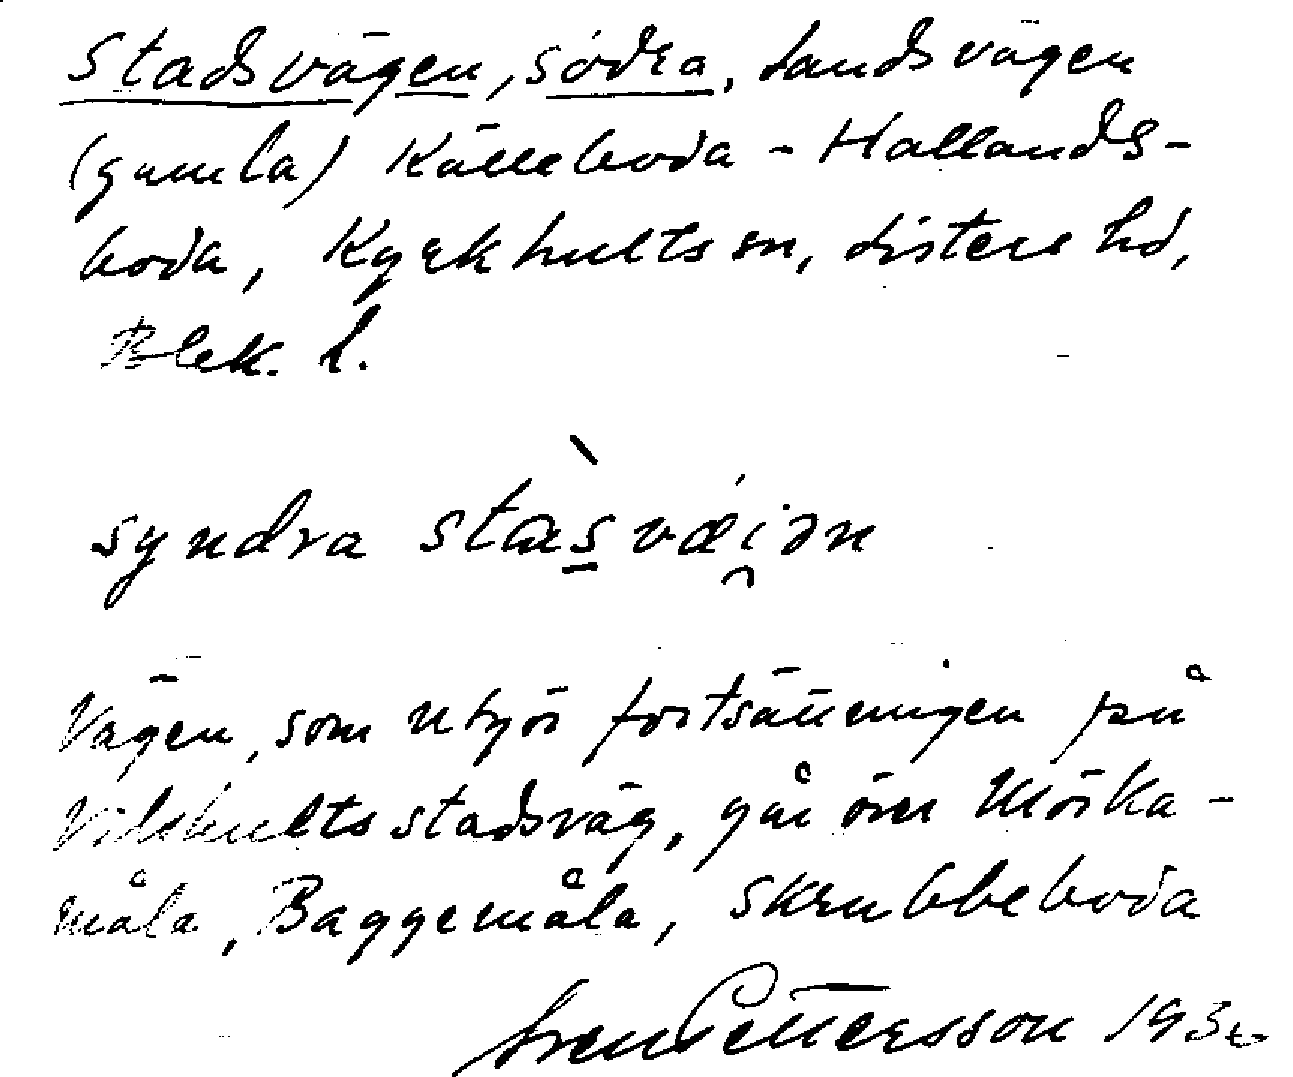 Stadsvägen, södra, Landsvägen
(gamla) Källeboda - Hallands-
boda, Kyrkhults sn, Listers hd,
Blek. l.
syndra stàs̱vǽi̯ən
Vägen, som utgör fortsättningen på
Vilshults stadsväg, går öm Mörka-
måla, Baggemåla, Skrubbeboda
Sven Pettersson 193